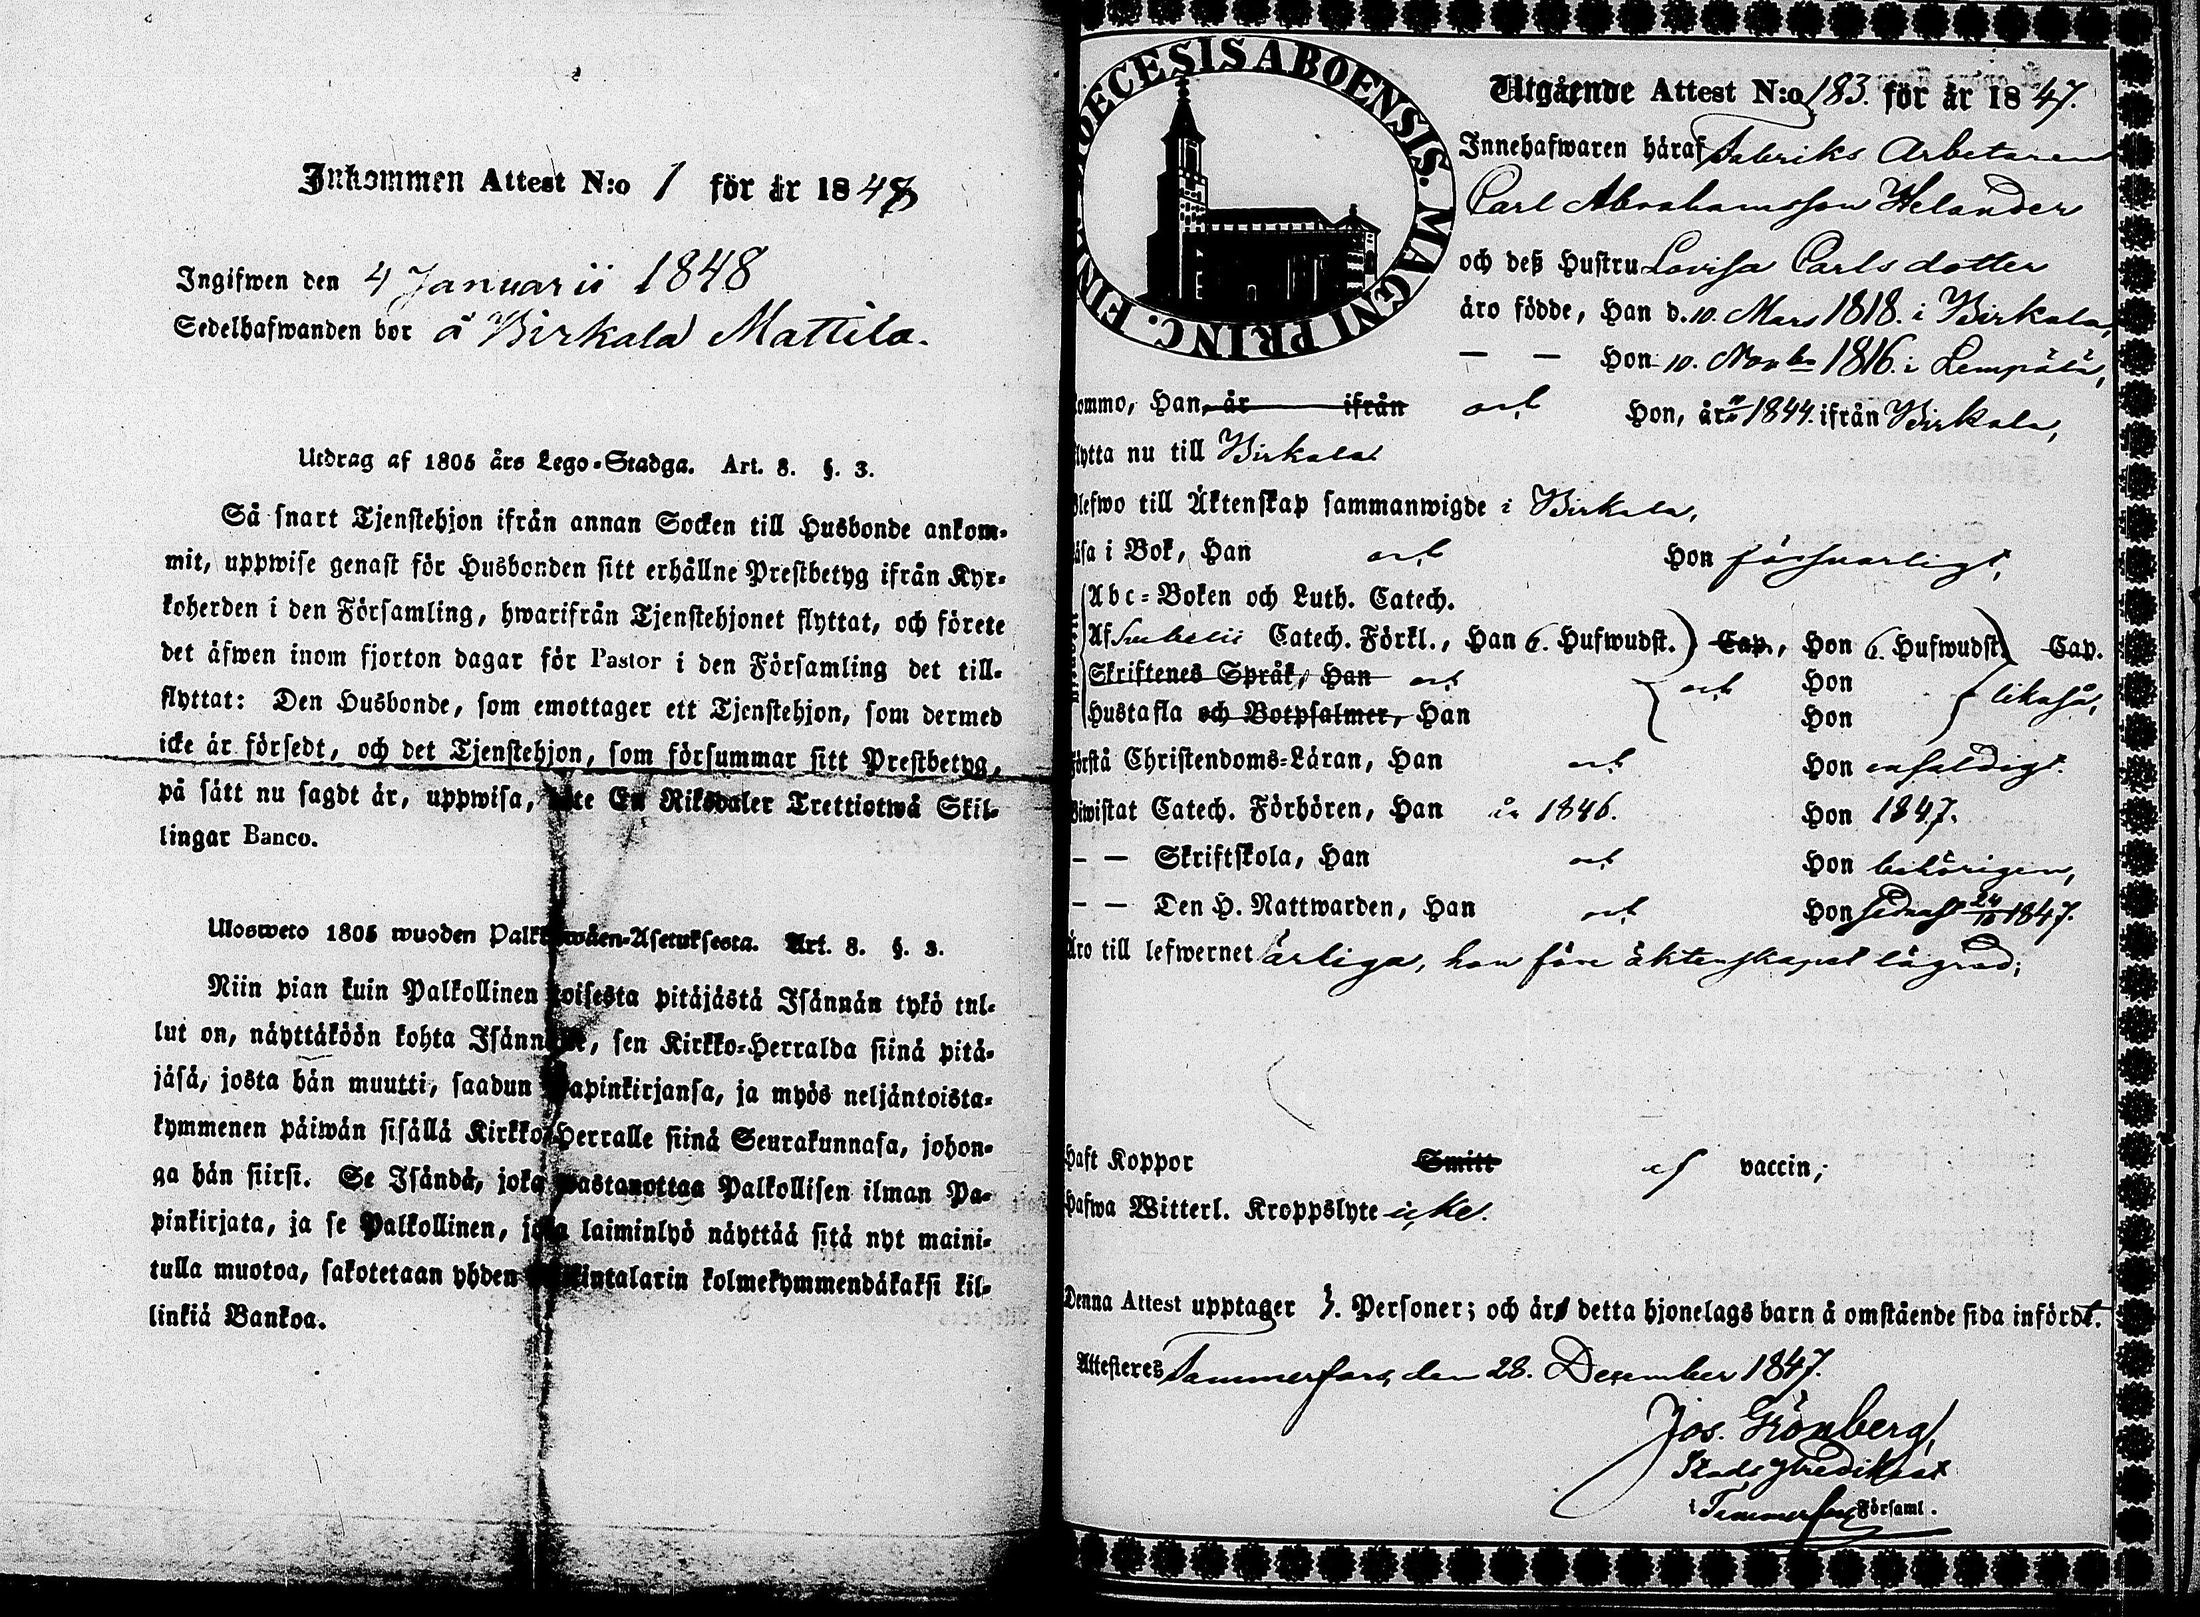 Inkommen Attest N:o 1 för år 1848
Ingifwen den 4 Januarii 1848
Sedelhafwanden bor å Birkala Mattila.
Utdrag af 1805 års Lego-Stadga. Art. 8. §. 3.
Så snart Tjenstehjon ifrån annan Socken till Husbonde ankom-
mit, uppwise genast för Husbonden sitt erhållne Prestbetyg ifrån Kyr-
koherden i den Församling, hwarifrån Tjenstehjonet flyttat, och förete
det äfwen inom fjorton dagar för Pastor i den Församling det till-
flyttat: Den Husbonde, som emottager ett Tjenstehjon, som dermed
icke är försedt, och det Tjenstehjon, som försummar sitt Prestbetyg,
på sätt nu sagdt är, uppwisa, böte En Riksdaler Trettiotwå Skil-
lingar Banco.
Ulosweto 1805 wuoden Palkkawäen-Asetuksesta. Art. 8. §. 3.
Niin pian kuin Palkollinen toisesta pitäjästä Isännän tykö tul-
lut on, näyttäköön kohta Isännälle, sen Kirkko-Herralda siinä pitä-
jäsä, josta hän muutti, saadun Papinkirjansa, ja myös neljäntoista-
kymmenen päiwän sisällä Kirkko-Herralle siinä Seurakunnasa, johon-
ga hän siirsi. Se Isändä, joka wastanottaa Palkollisen ilman Pa-
pinkirjata, ja se Palkollinen, joka laiminlyö näyttää sitä nyt maini-
tulla muotoa, sakotetaan yhden Riikintalarin kolmekymmendäkaksi kil-
linkiä Bankoa.
DIOECESIS ABOENSIS. MAGNI PRINC. FINL.
Utgående Attest N:o 183. för år 1847.
Innehafwaren häraf Fabriks Arbetaren
Carl Abrahamsson Helander
och deß Hustru Lovisa Carlsdotter
äro födde, Han d. 10. Mars 1818. i Birkala,
— — Hon 10. Novbr 1816. i Lempälä,
kommo, Han, år ifrån Hon, år 1844. ifrån Birkala,
flytta nu till Birkala
Blefwo till Äktenskap sammanwigde i Birkala,
Läsa i Bok, Han Hon försvarligt,
Abc-Boken och Luth. Catech.
Af Svebelii Catech. Förkl., Han 6. Hufwudst. Cap., Hon 6. Hufwudst. Cap.
Skriftenes Språk, Han Hon
Hustafla och Botpsalmer, Han Hon likaså,
Förstå Christendoms-Läran, Han Hon enfaldigt.
Biwistat Catech. Förhören, Han år 1846. Hon 1847.
— — Skriftskola, Han Hon behörigen,
— — Den H. Nattwarden, Han Hon sednast 24/10 1847.
Äro till lefwernet ärliga, hon före äktenskapet lägrad;
Haft Koppor Smitt af vaccin;
Hafwa Witterl. Kroppslyte icke.
Denna Attest upptager Personer; och äro detta hjonelags barn å omstående sida infördt.
Attesteres Tammerfors, den 28. December 1847.
Jos. Grönberg,
Stads Predikant
i Tammerfors Församl.